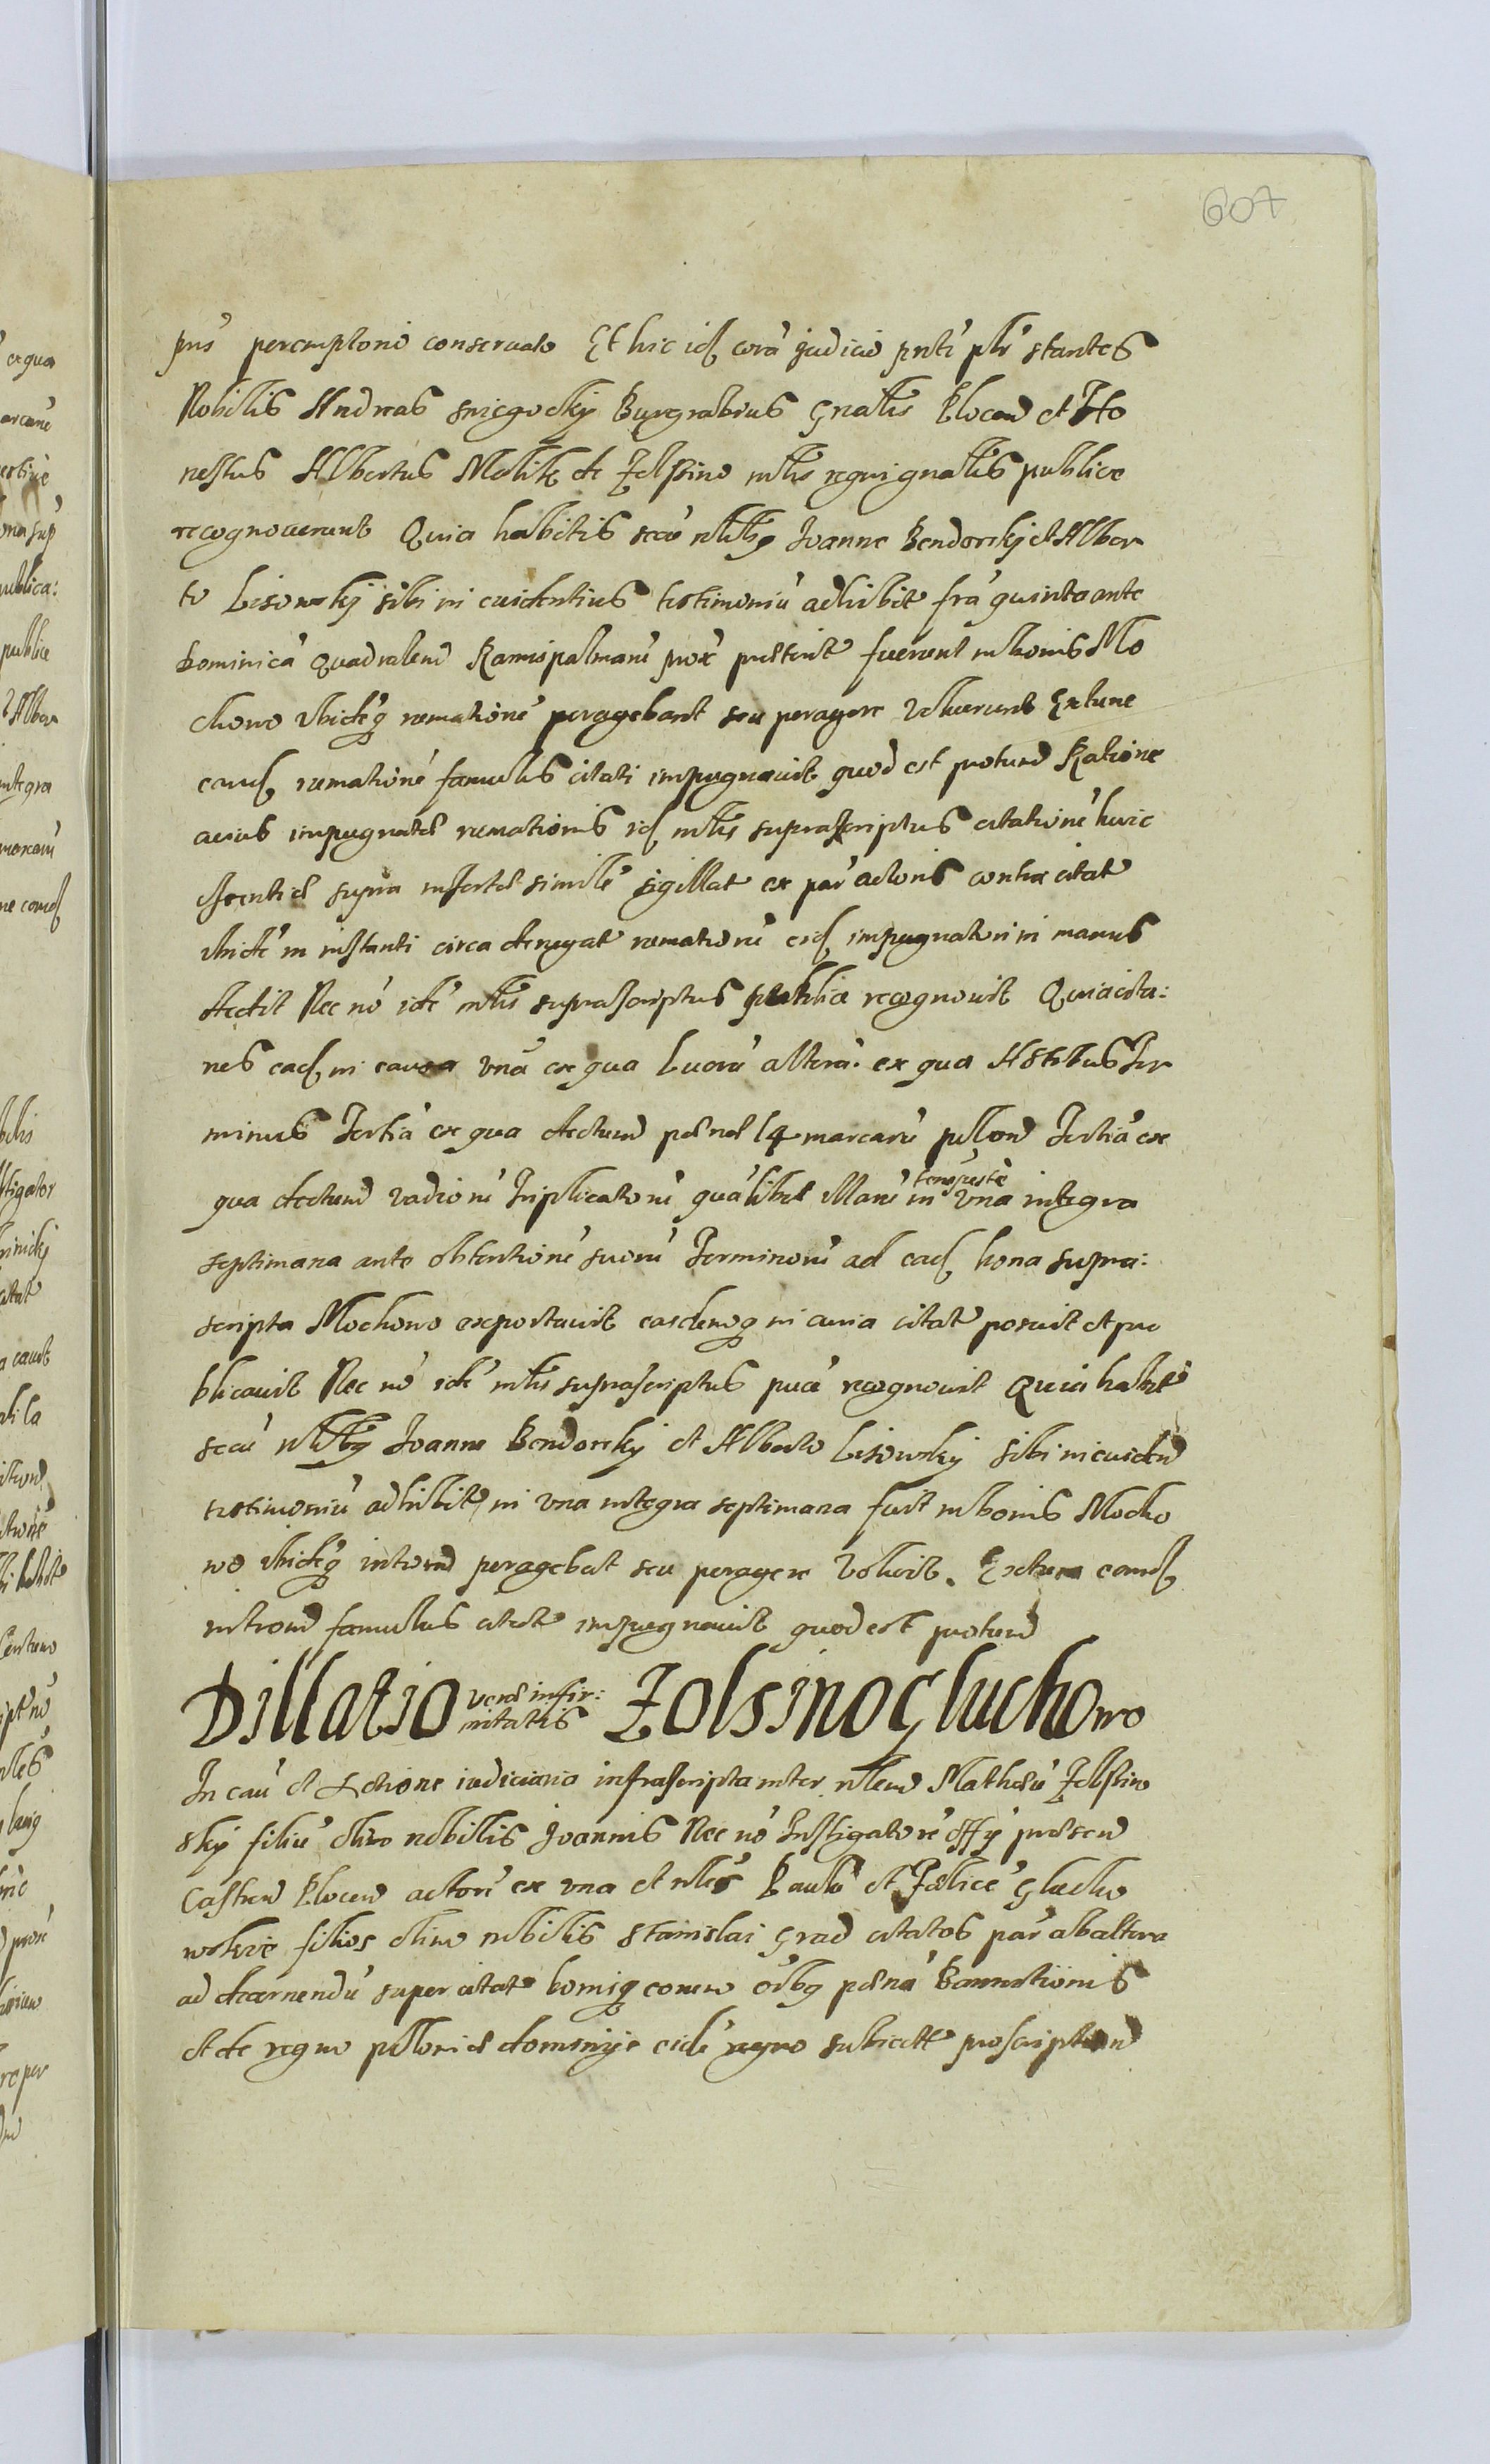 607
pns peremptorie conseruato Et hic id coram judicio pnti plr stantes
Nobilis Andreas sniegocky Burgrabius Gnalis Plocen et Ho
nestus Albertus Molik de Zolssino mlis regni gnalis publice
recognoverunt Quia habitis secu nlibg Ioanne Bendorsky et Alber
to Lisowsky sibi in euidentius testimoniu adhibit fra quinta ante
Dominica Quadralem Ramispalmaru prox pretent fuerunt in bonis Mo
chowo ibideq rumatione peragebant seu peragere voluerunt Extunc
eand rumatione famulus citati impugnauit quod est protund Ratione
cuius impugnate rumationis id mlis suprascriptus citatione huic
supra inserte simile sigillat ex par actoris contra citat
ibide in instanti circa denegat rumationi eid impugnatori in manus
dedit Nec no ide mlis suprascriptus publice recognouit Quia cita:
nes ead in causa vna ex qua Lucru altera ex qua Actibus Ter
minus Tertia ex qua dectum poene 14 marcaru pllon Tertia ex
qua dectum vadioru Triplicatoru qualibet illaru in tempeste vna integra
septimana ante obtentione suoru Terminoru ad ead bona supra:
scripta Mochowo exportauit easdemq in curia citat posuit et pu
blicauit Nec no ide mlis suprascriptus puce recognouit Quia habit
secu nlibg Ioanne Bendorsky et Alberto Lisowsky sibi in euiden
testimoniu adhibit in vna integra septimana fuit in bonis Mocho
wo ibideq introm peragebat seu peragere voluit. Extunc eand
introm famulus citat impugnauit quod est protund
Dillatio verae infir: mitatis Zolsino Gluchowo
In cau et Actione iudiciaria infrascripta inter nlem Mathaeu Zolssin
sky filiu olim nobilis Joannis Nec no Instigatore offy presen
Castren Plocen actore ex vna et nles Paulu et Foelice Glucho
wskie filios olim nobilis Stanislai Grad citatos par ab altera
ad decernendu super citat bonisq eorum oibg poena Bannitionis
et de regno plloniae dominyis eide regno subiectt proscription